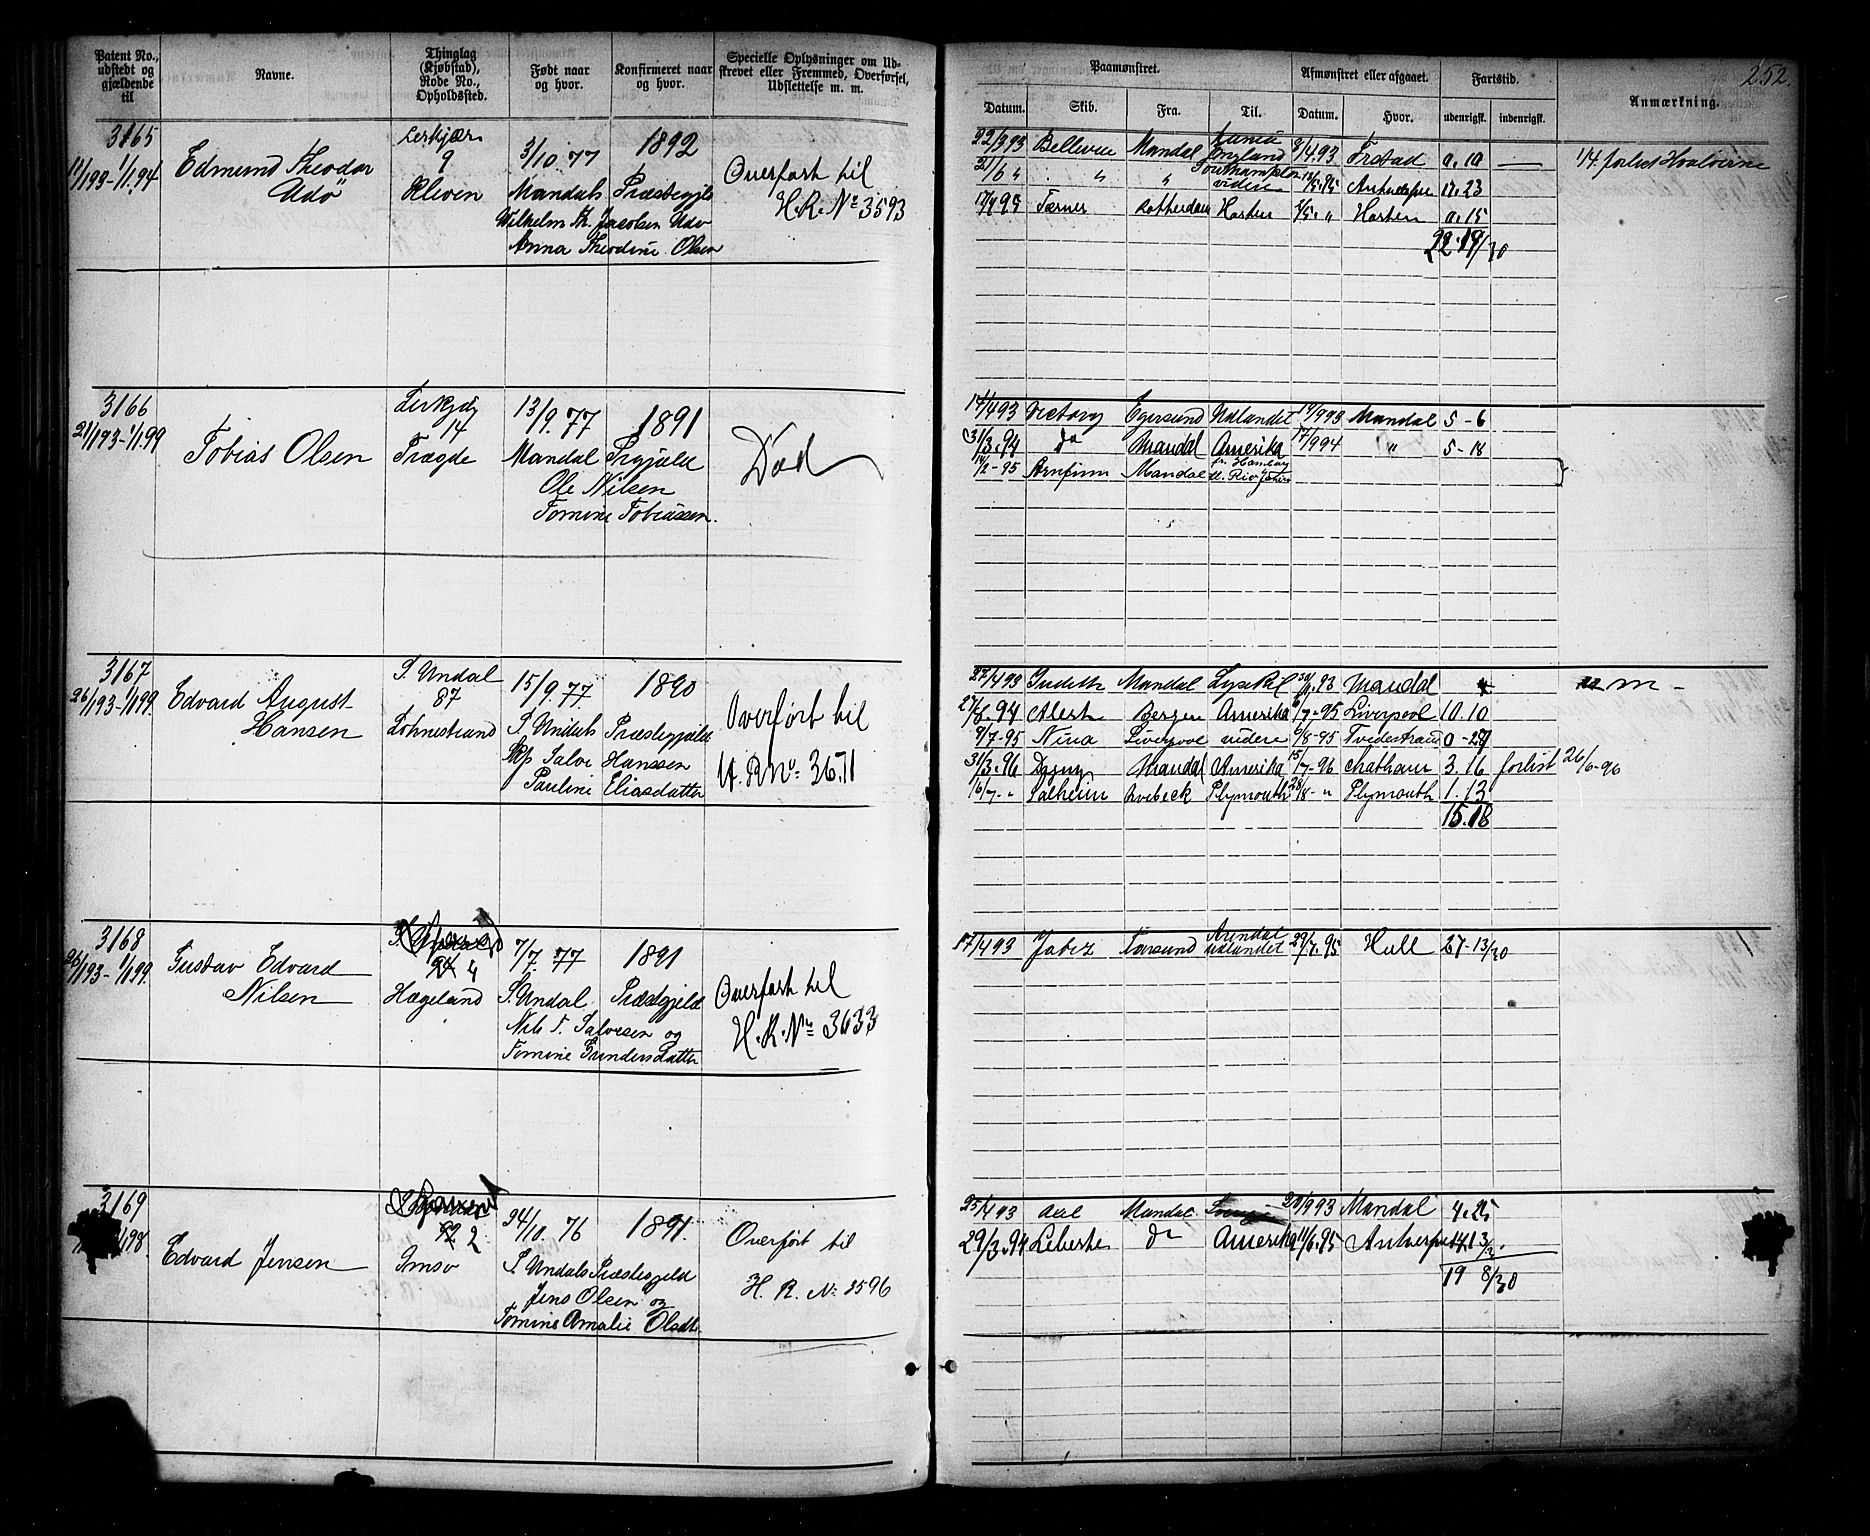 Patent No., udstedt og gjældende til
Navne.
Thinglag (Kjøbstad), Rode No., Opholdssted.
Født naar og hvor.
Konfirmeret naar og hvor.
Specielle Oplysninger om Udskrevet eller Fremmed, Overførsel, Udslettelse m. m.
Paamønstret.
Afmønstret eller afgaaet.
Fartstid.
Anmærkning.
252.
Datum. Skib. Fra. Til. Datum. Hvor. udenrigsk. indenrigsk.
3165
11/1 93 - 1/1 94
Edmund Theodor
Udö
9
Kleven
3/10. 77
1892
Mandals Præstegjld
Wilhelm Th. Jacobsen Udö
Anna Theodine Olsen
Overført til
H.R. No 3593
22/3 93 Bellevue Mandal England 9/4.93 0.10
Southampton
videre
17/4 95 Rotterdam Horten Horten 0.15
1/4 forlist Hvaløerne
3166
21/1 93 - 1/1 99
Tobias Olsen
14
Trægde
13/9. 77
1891
Mandal Prgjæld
Ole Nilsen
Tomine Tobiassen.
Död
14/4 93 Victory Egersund Udlandet Mandal 5 - 6
31/3. 94 do Mandal Amerika 17/9 94 " 5 - 18
14/2 - 95 Arnfinn Mandal
3167
26/1 93 - 1/1 99
Edvard August
Hansen
S. Undal
87
Lohnestrand
15/9. 77.
1890
S. Undals Præstegjæld
Salve Hanssen
Pauline Eliasdatter
Overført til
H. R No. 3611
27/4 93 Judith Mandal Lysekil Mandal
27/8. 94 Alert Bergen Amerika 6/7 - 95 Liverpool 10.10
9/7 - 95 Nina Liverpool videre 6/8 - 95 Tvedestrand 0 - 29
31/3. 96 Dagny Mandal Amerika 15/7 - 96 Chatham 3.16 forlist 26/6 - 96
16/7 - " Solheim Plymouth 28/8 - " Plymouth 1.13
15.18
3168
26/1 93 - 1/1 99.
Gustav Edvard
Nilsen
4
Hægeland
7/7. 77
1891
S. Undal. Præstegjeld
Nils T. Salvesen og
Tomine Gundersdatter
Overført til
H. R. No 3633
17/4 93 Jabez Farsund Arendal
udlandet 29/7. 95 Hull 27 - 13/30
3169
Edvard Jensen
2
Imsö
24/10. 76
1891.
S. Undals Præstegjeld
Jens Olsen og
Tomine Amalie Olsdtr.
Overført til
H. R. No. 3596
25/4 93 Mandal Mandal 4.25
29/3. 94 do Amerika 11/6. 95 Antwerpen
19 8/30